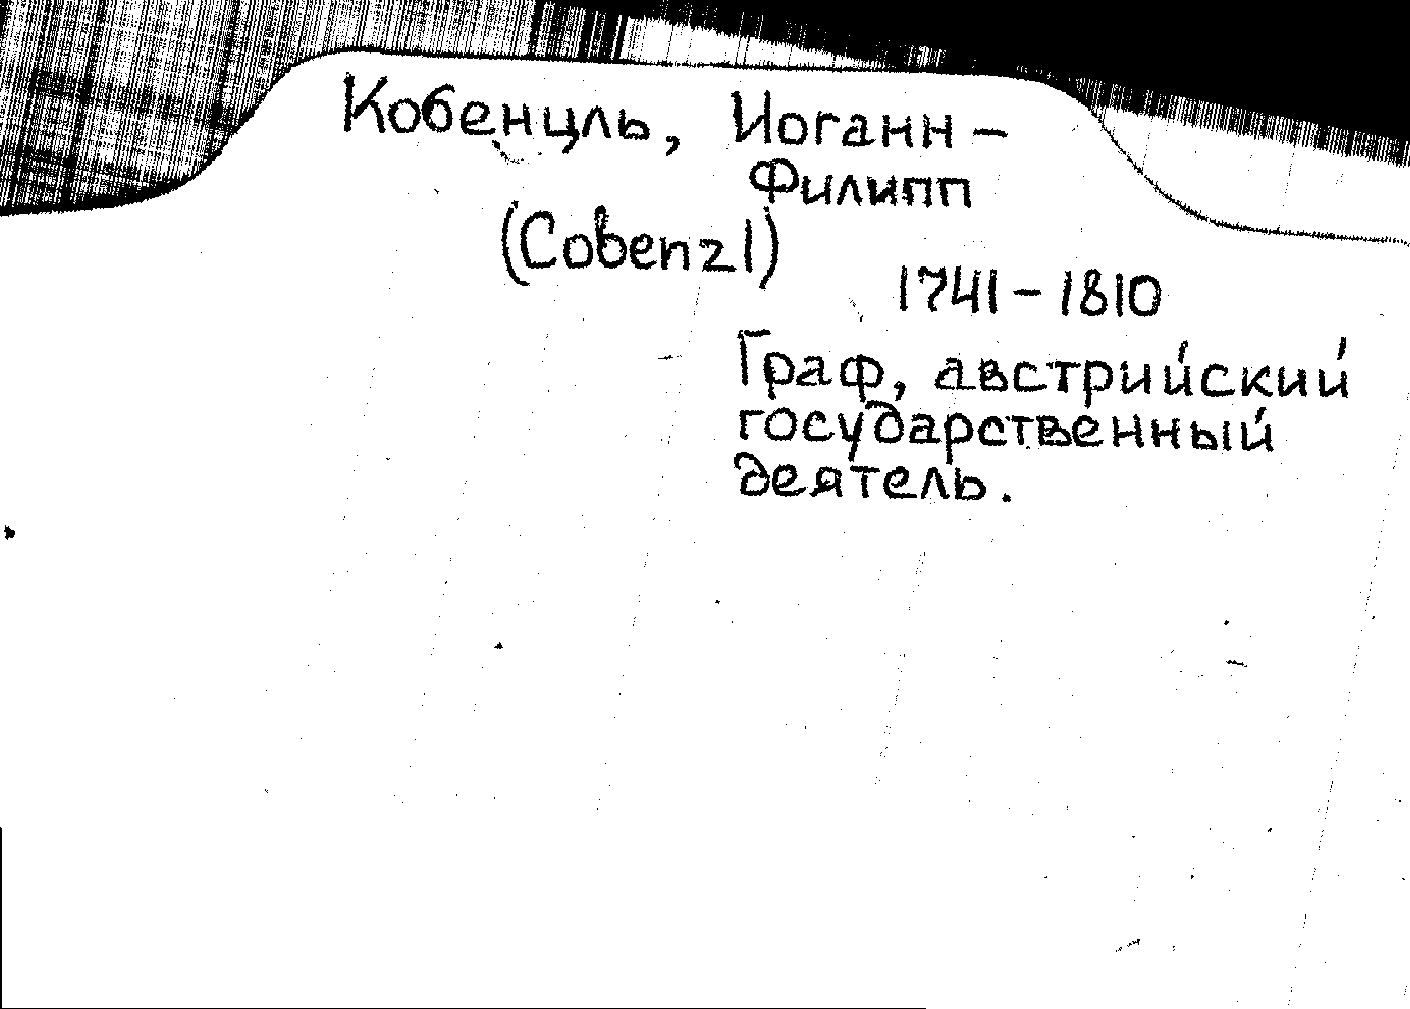 Кобенцль, Иоганн-
Филипп
(Cobenzl)
1741-1810
Граф, австрийский
государственный
деятель.